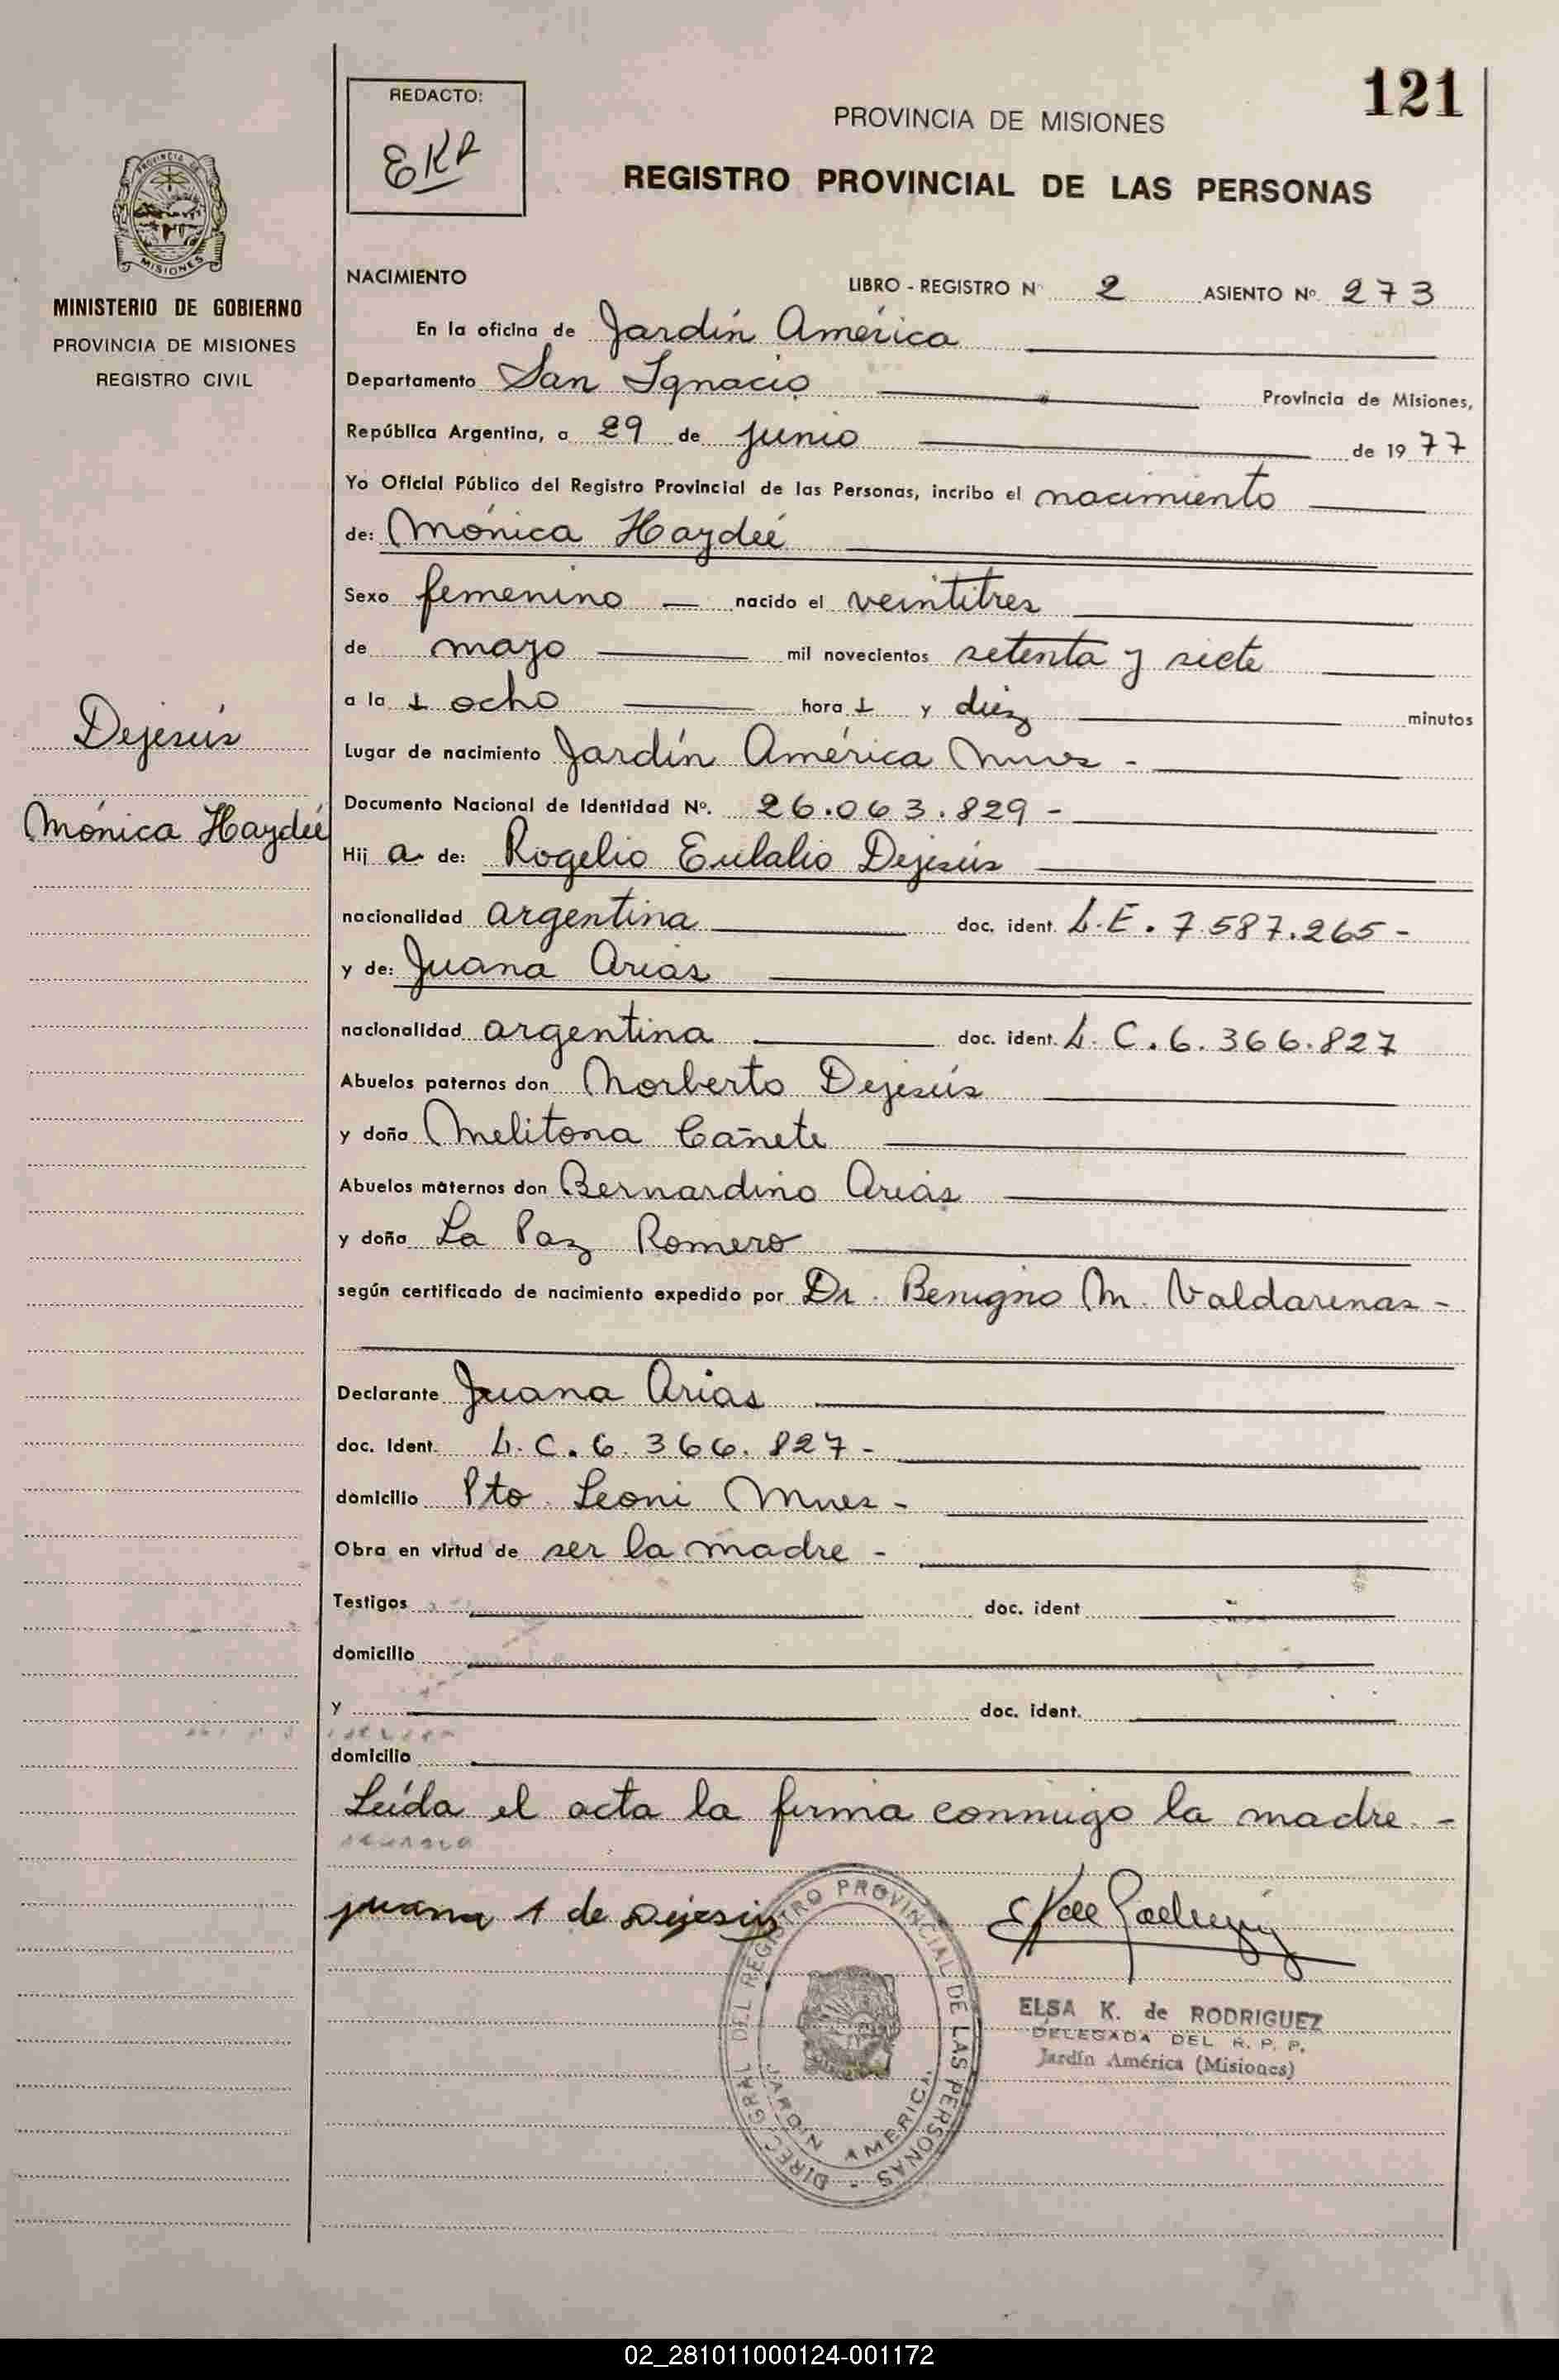 121
REDACTO:
EKR
PROVINCIA DE MISIONES
REGISTRO PROVINCIAL DE LAS PERSONAS
PROVINCIA DE
MISIONES
MINISTERIO DE GOBIERNO
PROVINCIA DE MISIONES
REGISTRO CIVIL
Dejesús
Mónica Haydeé
NACIMIENTO LIBRO - REGISTRO N° 2 ASIENTO Nº. 273
En la oficina de Jardín América
Departamento San Ignacio Provincia de Misiones,
República Argentina, a 29 de junio de 1977
Yo Oficial Público del Registro Provincial de las Personas, incribo el nacimiento
de: Mónica Haydeé
Sexo femenino — nacido el veintitres
de mayo mil novecientos setenta y siete
a la s ocho hora s y diez minutos
Lugar de nacimiento Jardín América Mnes -
Documento Nacional de Identidad Nº. 26.063.829 -
Hij a de: Rogelio Eulalio Dejesús
nacionalidad argentina doc. ident. L.E. 7.587.265 -
y de: Juana Arias
nacionalidad argentina doc. ident. L.C. 6.366.827
Abuelos paternos don Norberto Dejesús
y doña Melitona Cañete
Abuelos maternos don Bernardino Arias
y doña La Paz Romero
según certificado de nacimiento expedido por Dr. Benigno M. Valdarenas -
Declarante Juana Arias
doc. Ident. L.C. 6.366.827 -
domicilio Pto. Leoni Mnes -
Obra en virtud de ser la madre -
Testigos doc. ident
domicilio
y doc. ident.
domicilio
Leída el acta la firma conmigo la madre. -
juana A de Dejesús
DIREC. GRAL. DEL REGISTRO PROVINCIAL DE LAS PERSONAS
JARDIN AMERICA
ELSA K. de RODRIGUEZ
DELEGADA DEL R. P. P.
Jardín América (Misiones)
02_281011000124-001172